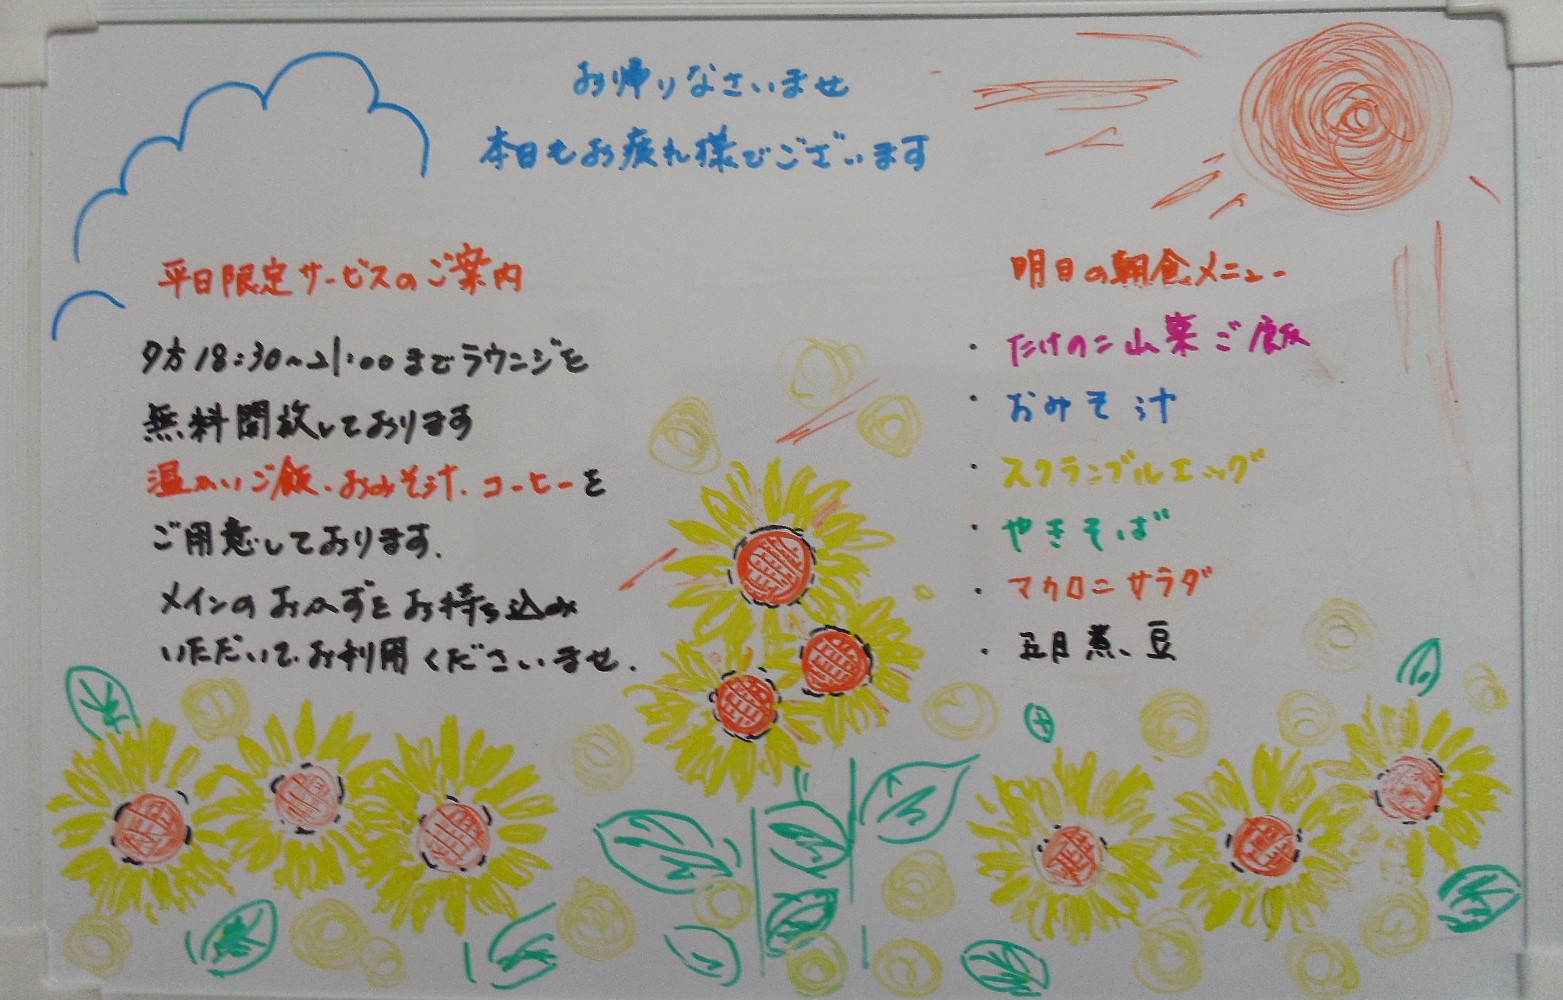 お帰りなさいませ
本日もお疲れ様でございます
平日限定サービスのご案内
夕方18:30~21:00までラウンジを
無料開放しております
温かいご飯、おみそ汁、コーヒーを
ご用意しております。
メインのおかずをお持ち込み
いただいて、お利用くださいませ。
明日の朝食メニュー
・たけのこ山菜ご飯
・おみそ汁
・スクランブルエッグ
・やきそば
・マカロニサラダ
・五目煮豆